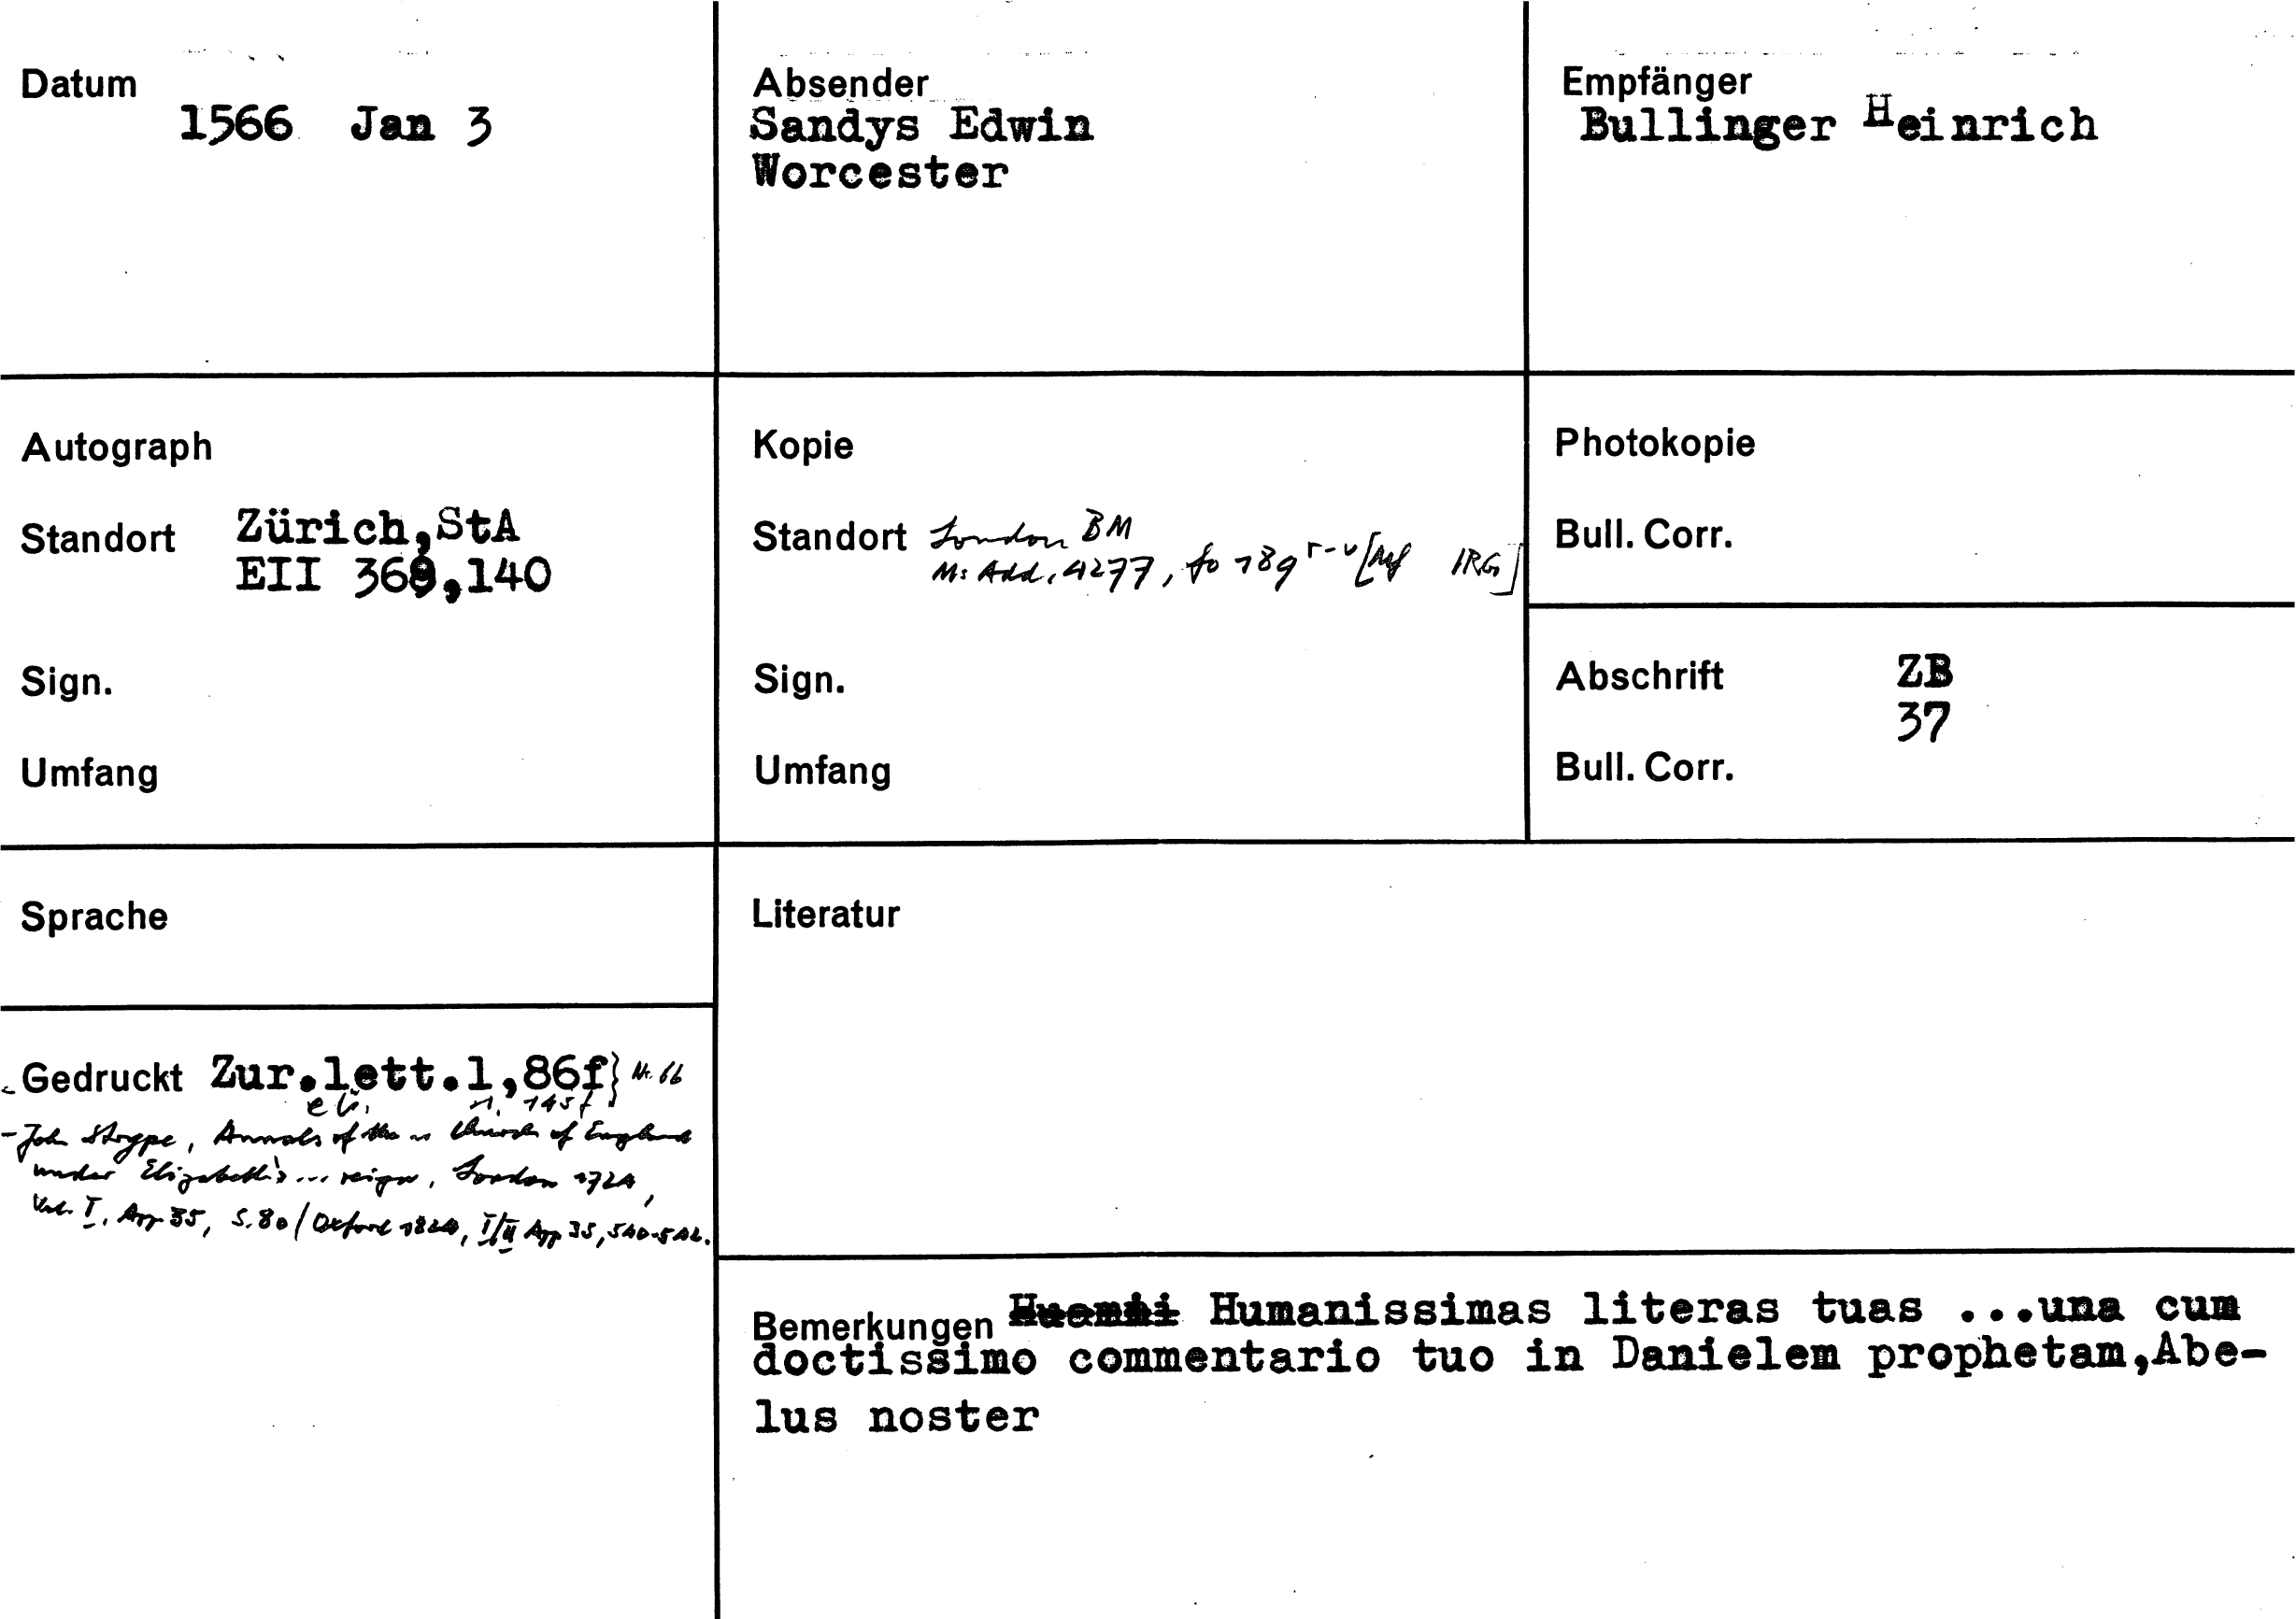 Datum
1566 Jan 3
Absender
Sandys Edwin
Worcester
Empfänger
Bullinger Heinrich
Autograph
Standort Zürich,StA
EII 369,140
Sign.
Umfang
Kopie
Standort London BM
Ms Add. 4277, fo 189 r-v [Mf IRG]
Sign.
Umfang
Photokopie
Bull. Corr.
Abschrift ZB
37
Bull. Corr.
Sprache
Literatur
Gedruckt Zur.lett.1,86f} Nr. 66
1, 145f
- John Strype, Annals of the .. Church of England
under Elizabeth's ... reign, London 1724,
Vol. I, App 35, S. 80 / Oxford 1824, I/II App 35, 540-542.
Bemerkungen Humanissimas literas tuas ...una cum
doctissimo commentario tuo in Danielem prophetam,Abe-
lus noster